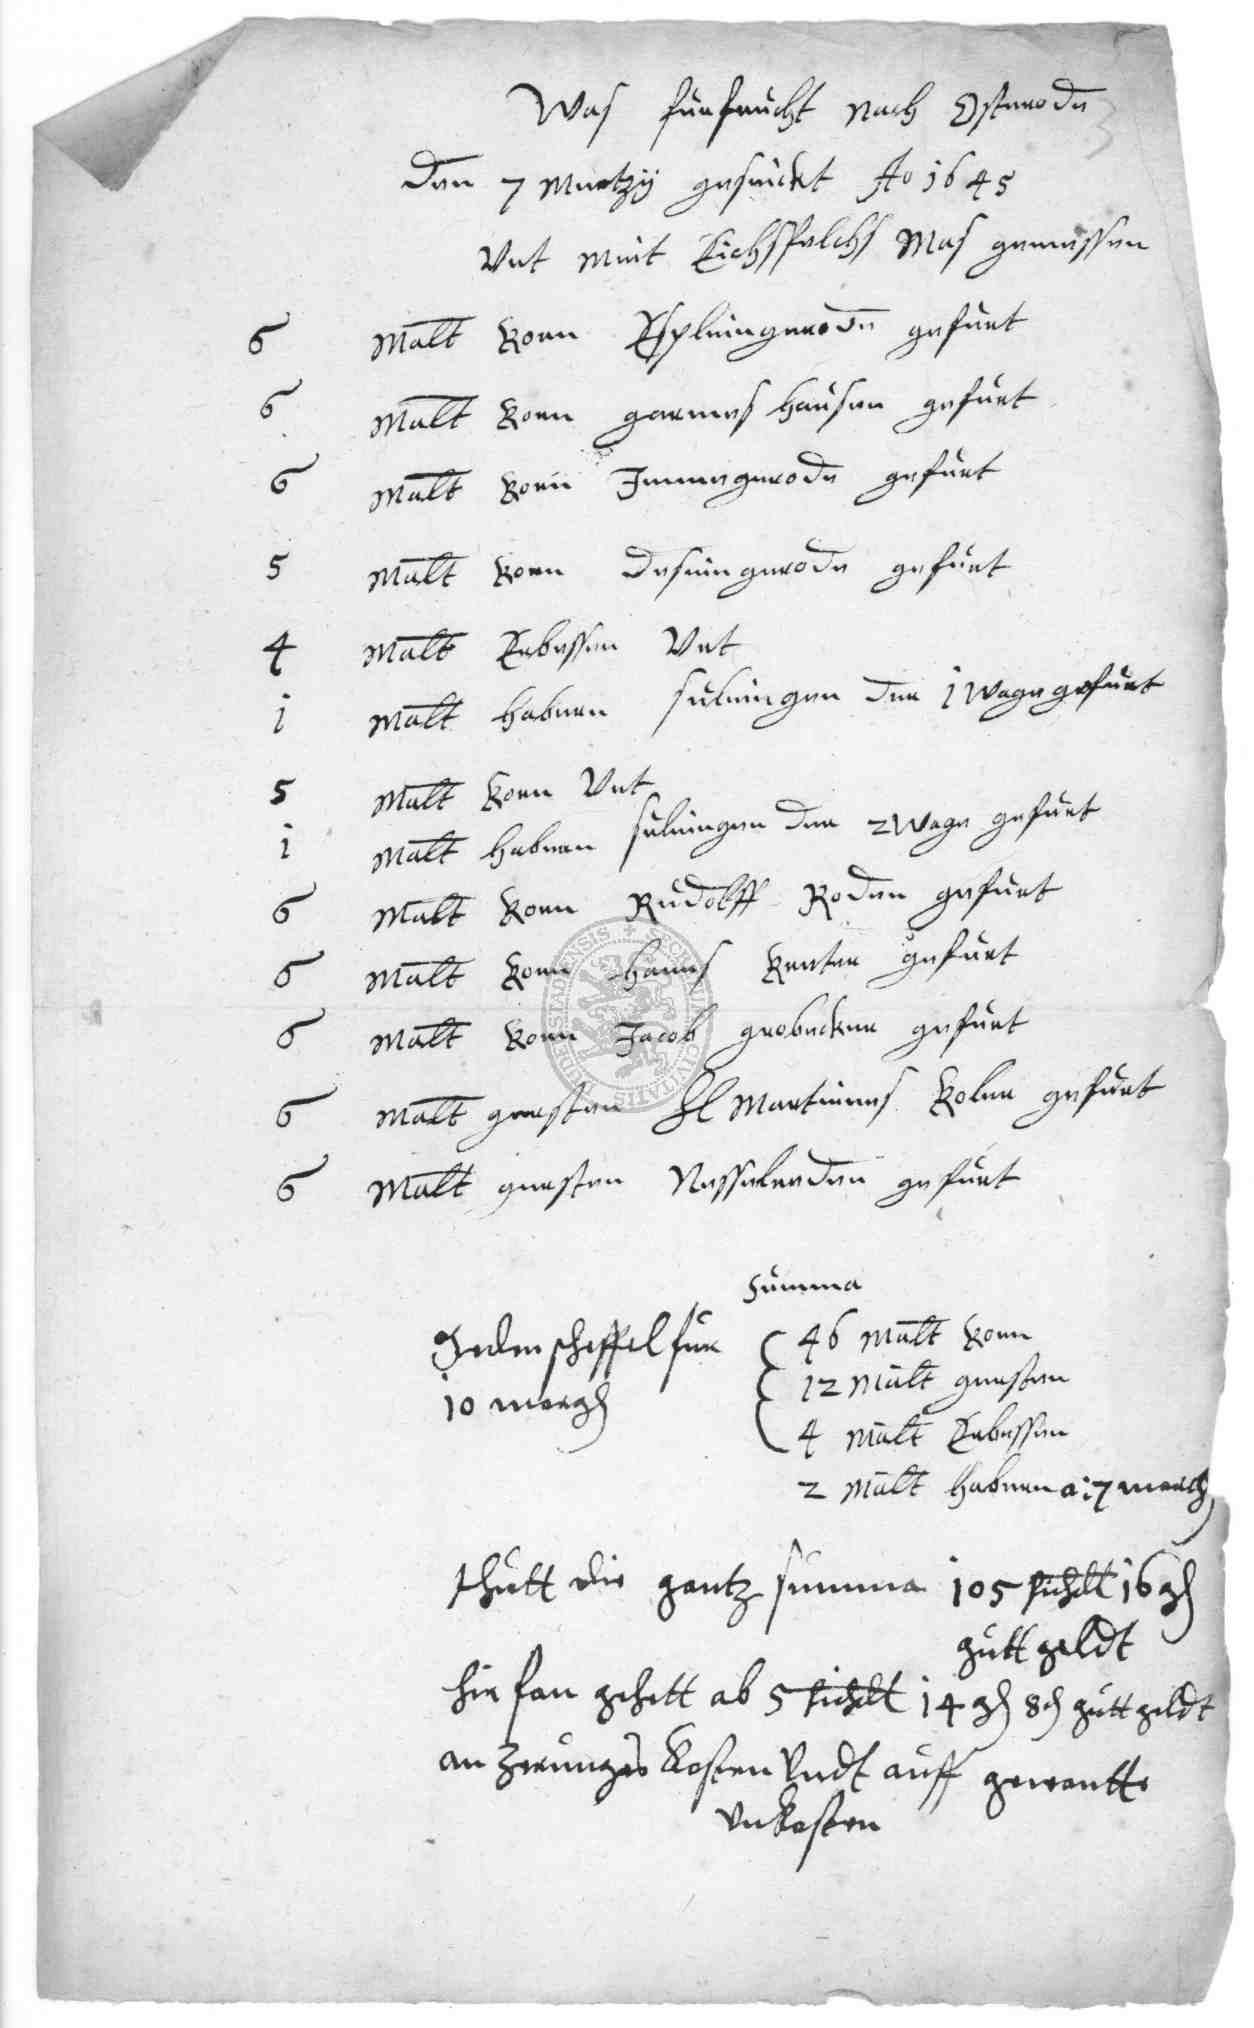 Was fur frucht nach Osterode
den 7 Martzy geschickt Ao 1645
Unt mit Eichsfelchs Mas gemessen
6 Malt Korn Esplingerode gefürt
6 Malt Korn garmeshausen gefürt
6 Malt Korn Immingerode gefürt
5 Malt Korn desingerode gefürt
4 Malt Erbessen Unt
1 Malt habern sulingen der 1 Wage gefürt
5 Malt Korn Unt
1 Malt habern sulingen der 2 Wage gefürt
6 Malt Korn Rudolff Roden gefürt
6 Malt Korn hanns Kenter gefürt
6 Malt Korn Jacob grobecker gefürt
6 Malt gersten H Martinus Koler gefürt
6 Malt gersten Nesselreden gefürt
Summa
Jeden scheffel fur 46 Malt Korn
10 margl 12 Malt gersten
4 Malt Erbessen
2 Malt habern a: 7 margl
thutt die gantz summa 105 16 gl
gutt geldt
hir fan gehett ab 5 14 gl 8 d gutt geldt
an zerungs Kosten Undt auff gewantte
Unkosten
SECRETUM CIVITATIS DUDERSTADENSIS